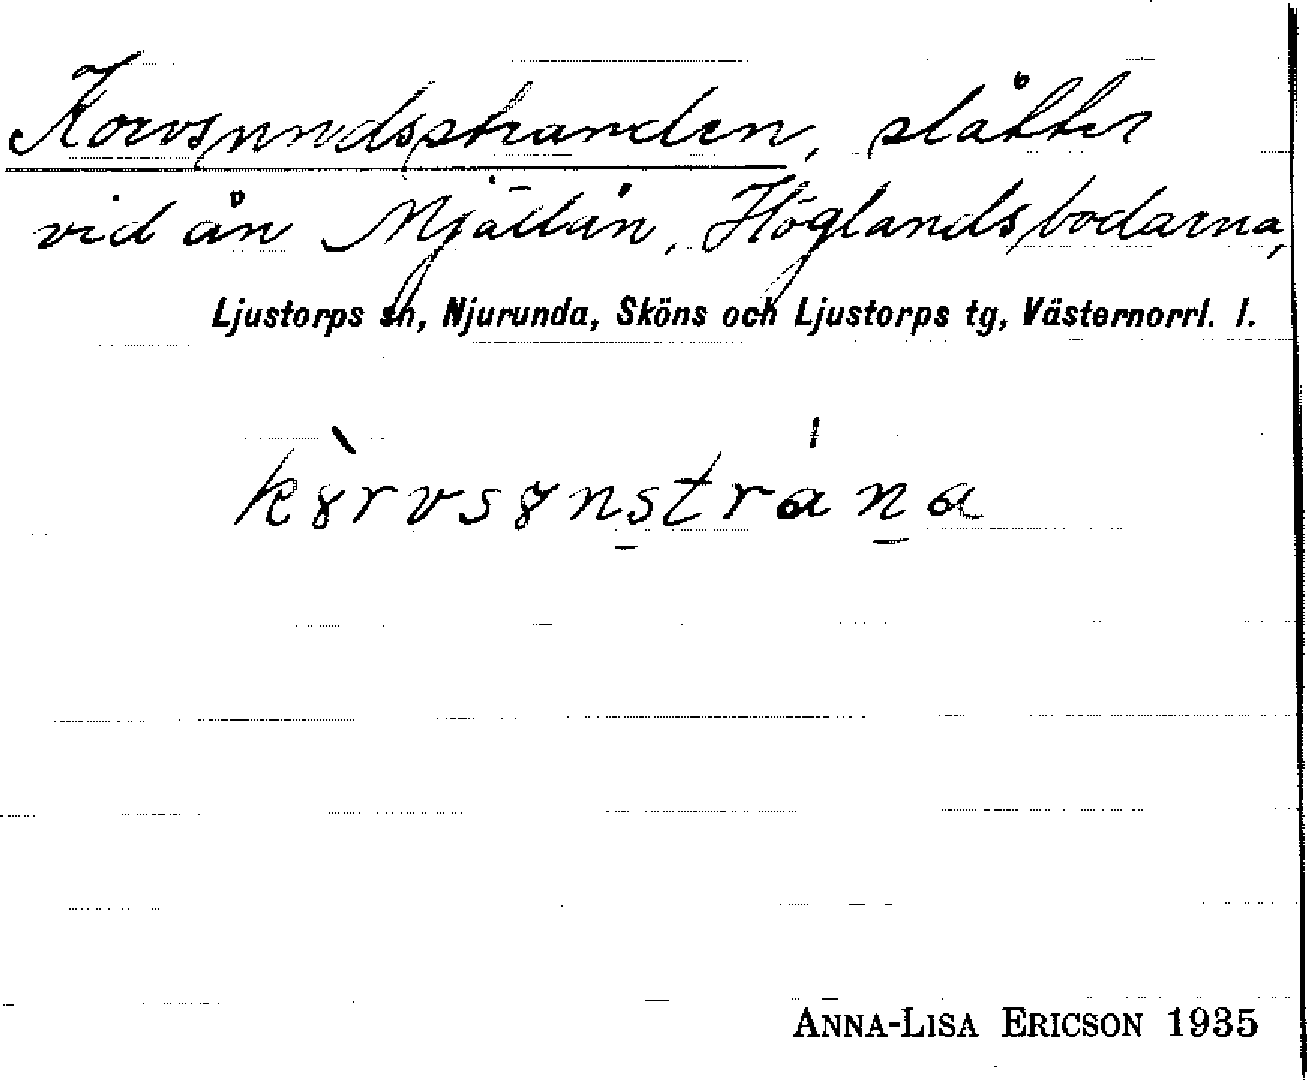 Korvsundsstranden, slåtter
vid ån Mjällån, Höglandsbodarna,
Ljustorps sn, Njurunda, Sköns och Ljustorps tg, Västernorrl. l.
kɣ̀rvsɣns̠trán̠a
ANNA-LISA ERICSON 1935